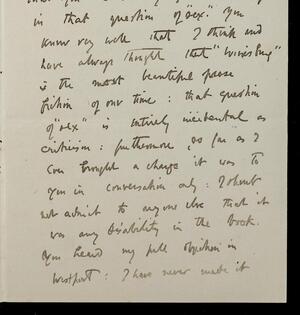 in that question of "sex". You
know very well that I think and
have always thought that
is the most beautiful prose
fiction of our time: that question
of "sex" is entirely incidental as
criticism: furthermore, so far as I
ever brought a charge it was to
you in conversation only: I should
not admit to anyone else that it
was any disability in the book.
You heard my full objection in
Westport: I have never made it